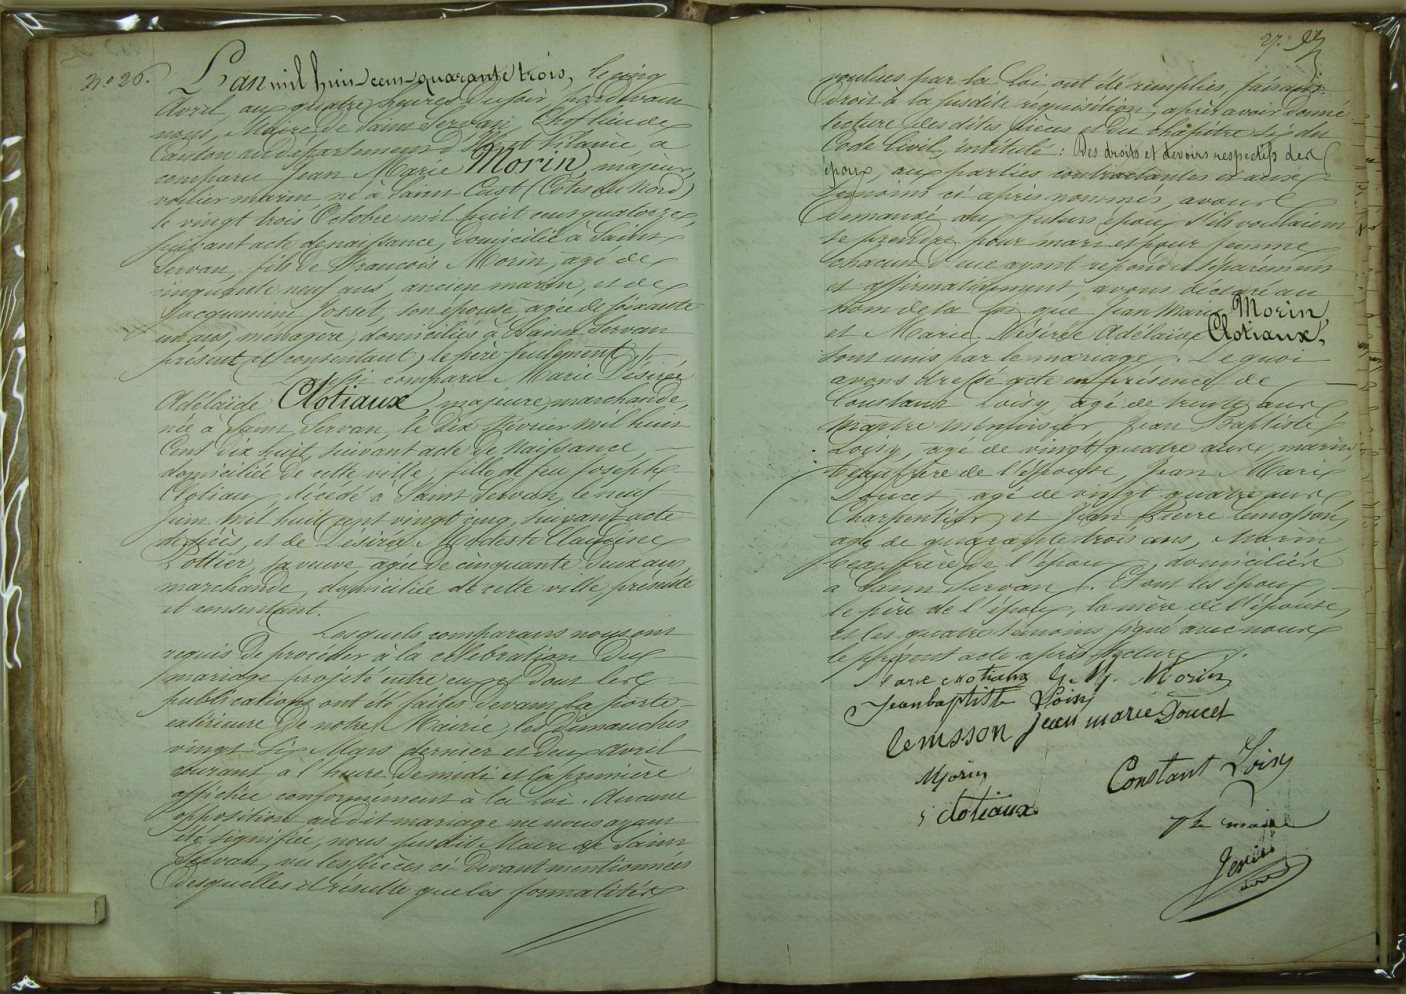 N.o 26.
L'an mil huit cent quarante trois, le cinq
Avril, aux quatre heures du soir, pardevant
nous, Maire de Saint Servan, Chef lieu de
Canton au département d'Ille et Vilaine, a
comparu Jean Marie Morin, majeur,
voilier marin né à Saint Cast (Côtes du Nord)
le vingt trois Octobre mil huit cent quatorze,
suivant acte de naissance, domicilié à Saint
Servan, fils de François Morin, âgé de
cinquante neuf ans, ancien marin, et de
Jacquemine Josset, son épouse, âgée de soixante
un ans, ménagère, domiciliés à Saint Servan
présent et consentant, le père seulement ./.
Aussi comparu Marie Désirée
Adélaïde Clotiaux, majeure, marchande,
née à Saint Servan, le dix Février mil huit
Cent dix huit, suivant acte de Naissance
domiciliée de cette ville, fille de feu Joseph
Clotiaux, décédé à Saint Servan, le neuf
juin mil huit cent vingt cinq, suivant acte
de décès, et de Désirée Modeste
Pottier, sa veuve, âgée de cinquante deux ans,
marchande, domiciliée de cette ville présente
et consentant.
Lesquels comparans nous ont
requis de procéder à la célébration du
mariage projeté entre eux et dont les
publications ont été faites devant la porte
extérieure de notre Mairie, les Dimanches
vingt six Mars dernier et deux avril
courant à l'heure de midi et la première
affichée conformément à la loi. Aucune
opposition au dit mariage ne nous ayant
été signifiée, nous susdit Maire de Saint
Servan, vu les pièces ci devant mentionnées
desquelles il résulte que les formalités
27.
voulues par la loi ont été remplies, faisant
droit à la susdite réquisition, après avoir donné
lecture des dites pièces et du chapitre six du
Code Civil, intitulé : Des droits et devoirs respectifs des
époux, aux parties contractantes et aux
témoins ci après nommés, avons
demandé aux futurs époux s'ils voulaient
se prendre pour mari et pour femme
chacun d'eux ayant répondu séparément
et affirmativement, avons déclaré au
nom de la loi que Jean Marie Morin,
et Marie Désirée Adélaïde Clotiaux,
sont unis par le mariage. De quoi
avons dressé acte en présence de
Constant Loisy, âgé de trente ans,
maître menuisier, Jean Baptiste
Loisy, âgé de vingt quatre ans, marin,
beaufrère de l'épouse, Jean Marie
Doucet, âgé de vingt quatre ans,
Charpentier, et Jean Pierre Lemasson,
âgé de quarante trois ans, Marin
beaufrère de l'époux, domiciliés
à Saint Servan. Et ont les époux,
le père de l'époux, la mère de l'épouse
et les quatre témoins signé avec nous
le présent acte après lecture ./.
Marie clotiaux J. M. Morin
Jean baptiste Loisy
lemsson Jean marie Doucet
Morin
Constant Loisy
clotiaux
Le maire